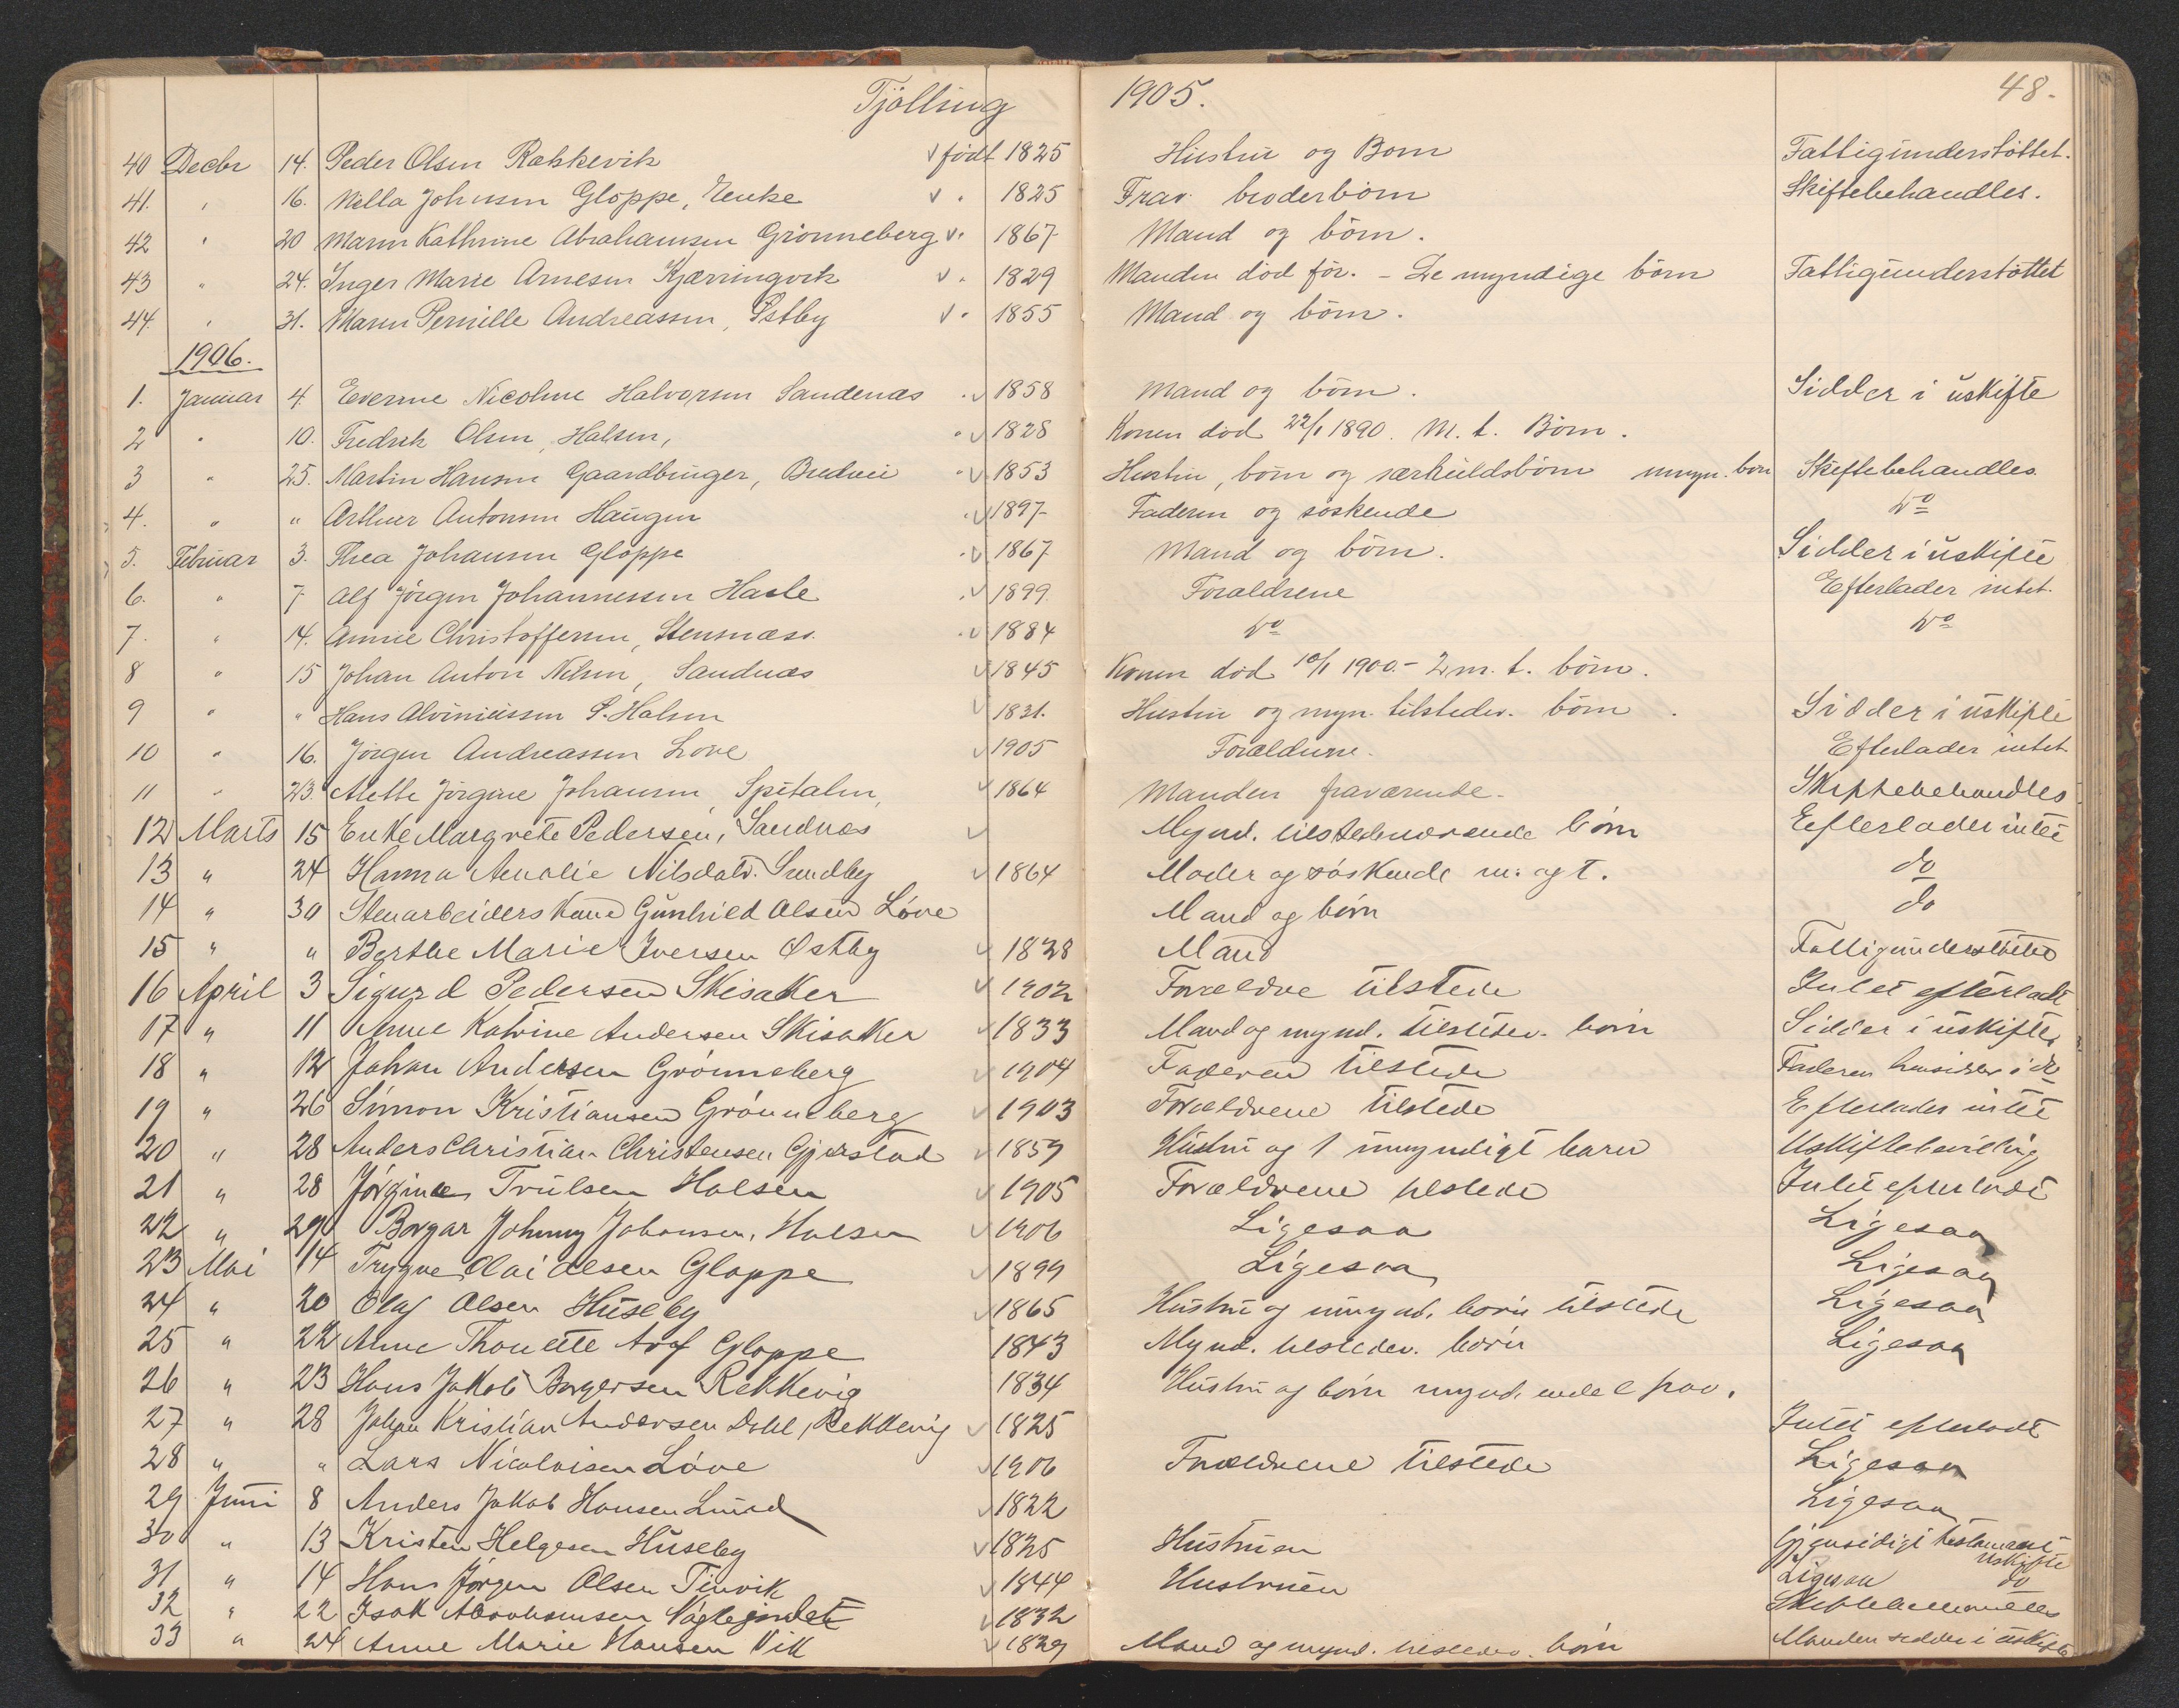 Tjölling 1905. 48.
40 Decbr 14. Peder Olsen Rakkevik v født 1825 Hustru og Born Fattigunderstöttet.
41. " 16. Nella Johnsen Gloppe, Enke v " 1825 Frav. broderbörn Skiftebehandles.
42 " 20 Maren Kathrine Abrahamsen Grönneberg v " 1867 Mand og börn.
43 " 24. Inger Marie Arnesen Kjærringvik v " 1829 Manden död för. - De myndige börn Fattigunderstöttet
44. " 31. Maren Pernille Andreassen, Østby v " 1855 Mand og börn.
1906.
1. Januar 4. Everine Nicoline Halvorsen Sandenæs " v 1858 Mand og börn. Sidder i uskifte
2 " 10. Fredrik Olsen, Halsen, " v 1828 Konen död 22/1 1890. M. t. Börn.
3 " 25. Martin Hansen Gaardbruger, " v 1853 Hustru, börn og særkuldsbörn umyn. börn Skiftebehandles.
4. " " Arthur Antonsen Haugen " v 1897 Faderen og söskende do
5. Februar 3. Thea Johansen Gloppe " v 1867 Mand og börn. Sidder i uskifte
6. " 7. Alf Jörgen Johannessen Hasle " v 1899 Forældrene Efterlader intet.
7. " 14. Annie Christoffersen, Stensnæss. " v 1884 do do
8 " 15 Johan Anton Nilsen, Sandnæs v 1845 Konen död 10/1 1900. - 2 m. t. börn.
9 " " Hans Alviniussen S. Halsen v 1831. Hustru og myn. tilstedev. börn. Sidder i uskifte
10 " 16. Jörgen Andreassen Love v 1905 Forældrene. Efterlader intet.
11 " 23. Mette Jörgine Johansen, Spitalen, v 1864 Manden fraværende. Skiftebehandles
12 Marts 15 Enke Margrete Pedersen, Sandnæs v Mynd. tilstedeværende börn Eefterlader intet
13 " 24 Hanna Amalie Nilsdatr. Sundby v 1864 Moder og söskende m. og t. do
14 " 30 Stenarbeiders Kone Gunhild Olsen Löve Mand og börn do
15 " " Berthe Marie Iversen Østby v 1828 Mand Fattigunderstöttet
16 April 3 Sigurd Pedersen Skisaker v 1902 Forældre tilstede Intet efterladt
17 " 11 Anne Katrine Andersen Skisaker v 1833 Mand og mynd. tilstedev. börn Sidder i uskifte
18 " 12 Johan Andersen Grönneberg v 1904 Faderen tilstede Faderen hensidder i do
19 " 26 Simon Kristiansen Grönneberg v 1903 Forældrene tilstede Efterlader intet
20 " 28 Anders Christian Christensen Gjerstad v 1859 Hustru og 1 umyndigt barn Uskiftebevilling
21 " 28 Jörgine Trulsen Halsen v 1905 Forældrene tilstede Intet efterladt
22 " 29 Borgar Johnny Johansen, Halsen v 1906 Ligesaa Ligesaa
23 Mai 14 Trygve Olai Olsen Gloppe v 1899 Ligesaa Ligesaa
24 " 20 Olaf Olsen Huseby v 1865 Hustru og umynd. börn tilstede Ligesaa
25 " 22 Anne Gloppe 1843 Mynd. tilstedev. börn Ligesaa
26 " 23 Hans Jakob Borgersen Rekkevig 1834 Hustru og börn mynd. endel frav.
27 " 28 Johan Kristian Andersen Dahl, Rekkevig v 1825 Intet efterladt
28 " " Lars Nicolaisen Löve v 1906 Forældrene tilstede Ligesaa
29 Juni 8 Anders Jakob Hansen Lund v 1822 Ligesaa
30 " 13 Kristen Helgesen Huseby v 1825 Hustruen Gjensidigt testament uskifte
31 " 14 Hans Jörgen Olsen Tinvik v 1844 Hustruen Ligesaa do
32 " 22 Isak Abrahamsen v 1832 Skiftebehandles
33 " 24 Anne Marie Hansen Vik v 1829 Mand og mynd. tilstedev. börn Manden sidder i uskifte